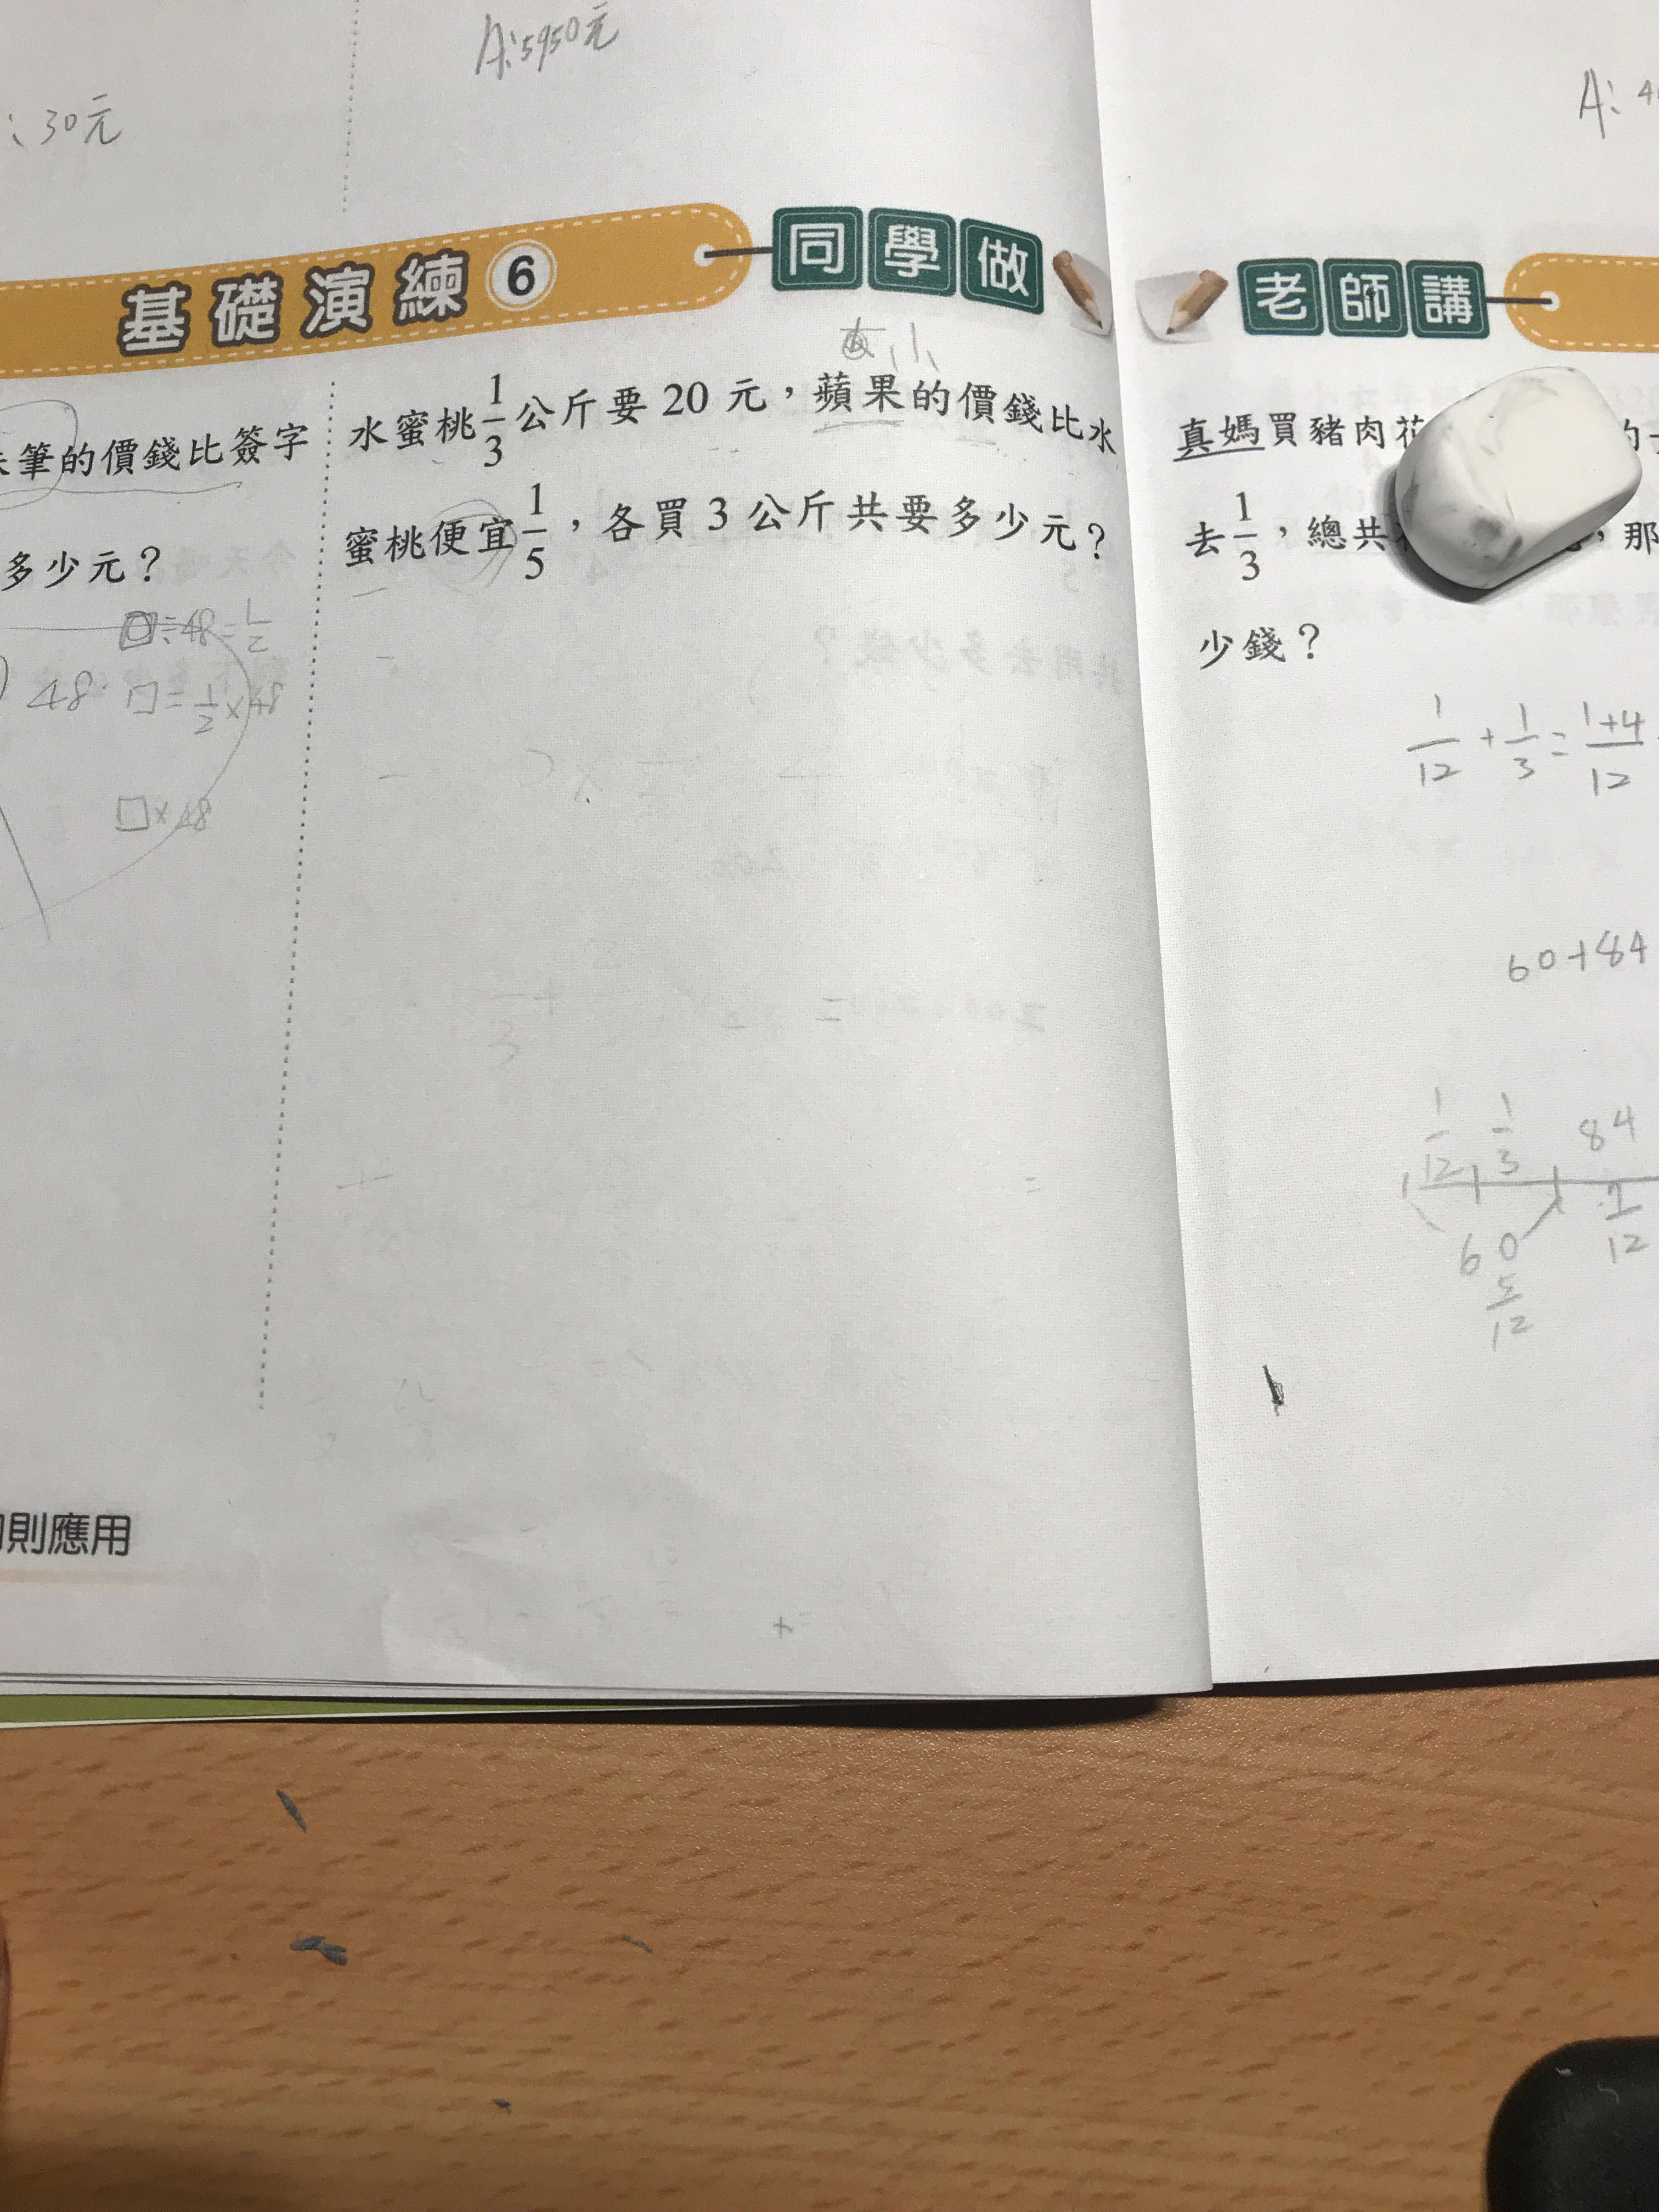 A:5950元
:30元
A:4
基礎演練6
同學做
老師講
小
筆的價錢比簽字
多少元?
□÷48=1/2
48
□=1/2×48
□×48
水蜜桃1/3公斤要20元,蘋果的價錢比水
蜜桃便宜1/5,各買3公斤共要多少元?
真媽買豬肉花
去1/3,總共
,那
少錢?
1/12+1/3=1+4/12
60+84
1/12 1/3 84
60
5/12
則應用
+